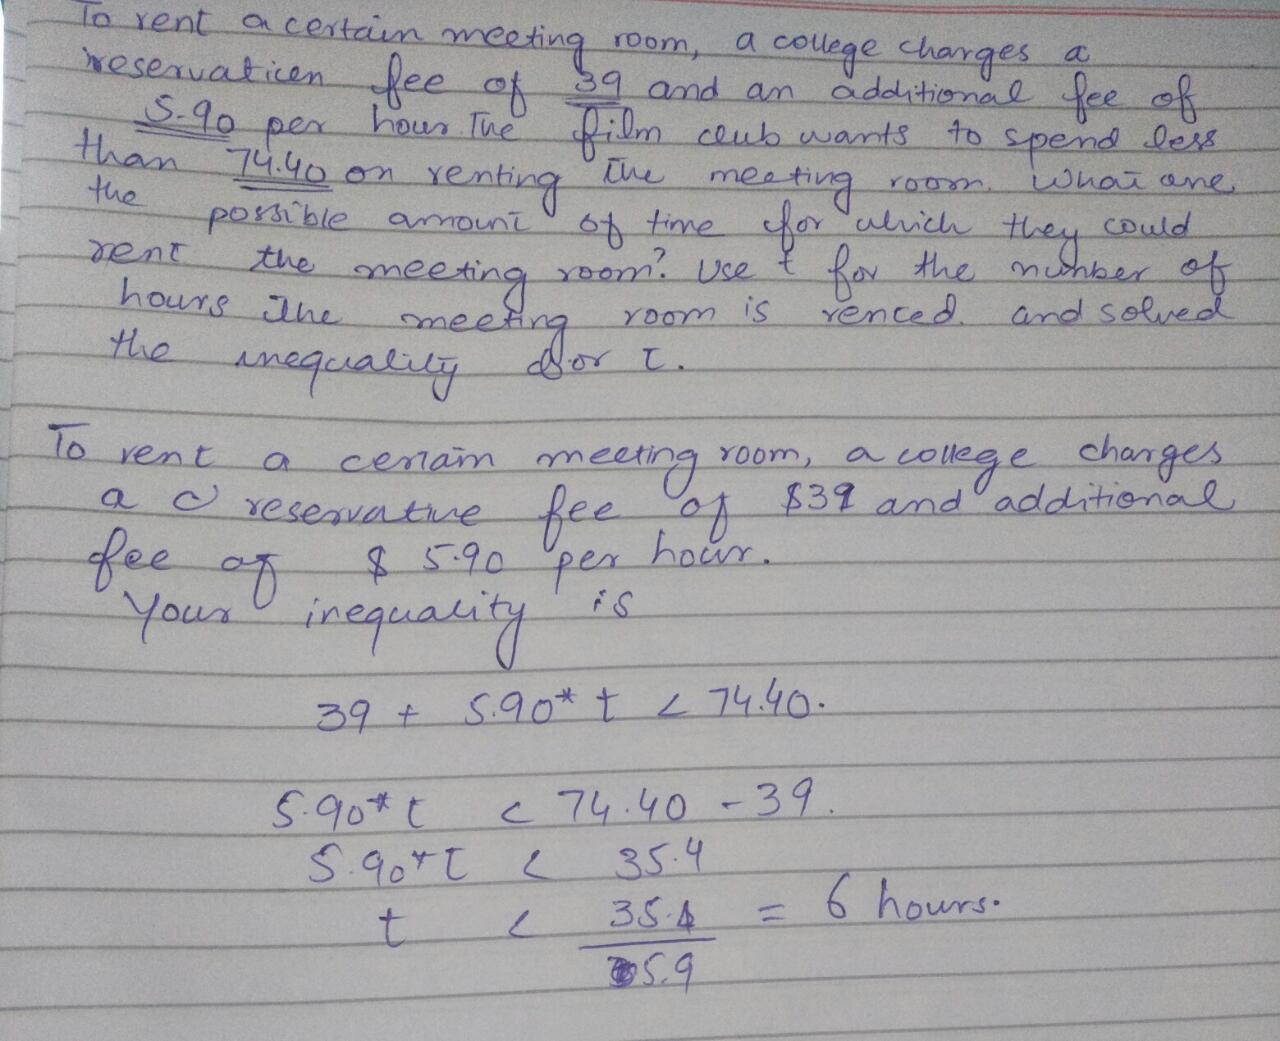 To rent a certain meeting room, a college charges a
reservation fee of 39 and an additional fee of
5.90 per hour. The film club wants to spend less
than 74.40 on renting the meeting room. What are
the possible amount of time for which they could
rent the meeting room? Use t for the number of
hours the meeting room is rented. and solved
the inequality for t.
To rent a certain meeting room, a college charges
a reservative fee of $39 and additional
fee of $ 5.90 per hour.
Your inequality is
39 + 5.90* t < 74.40.
5.90* t < 74.40 - 39.
5.90* t < 35.4
t < 35.4 = 6 hours.
5.9